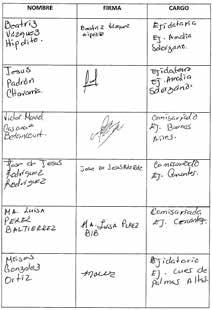 NOMBRE FIRMA CARGO
Beatriz
Vazquez
Hipolito.
Beatriz Vazquez
Hipolito
Ejidataria
Ej. Amelia
Solorzano.
Jesus
Padrón
Chavarria.
Ejidatario
Ej. Amelia
Solorzano.
Victor Manuel
Casanova
Betancourt.
Comisariado
Ej. Buenos
Aires.
Jose de Jesus
Rodriguez
Rodriguez
Jose de Jesus
Comisariado
Ej. Cervantes.
Ma. Luisa
PEREZ
BALTIERREZ
Ma. Luisa Perez
Comisariada
Ej. Cervantes.
Moises
Gonzalez
Ortiz
Moises
Ejidatario
Ej. Cues de
Palmas Altas.